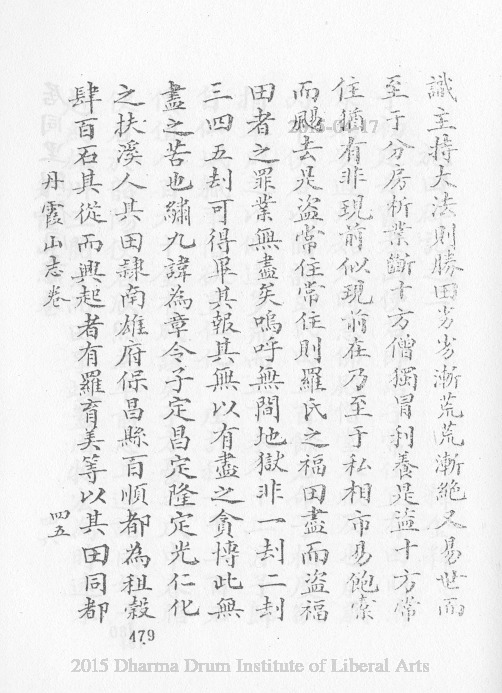 識主持大法則勝田劣劣漸荒荒漸絶又易世而
至于分房析業斷十方僧獨冒利養是盜十方常
住猶有非現前似現前在乃至于私相市易飽槖
而颺去是盜常住常住則羅氏之福田盡而盜福
田者之罪業無盡矣嗚呼無間地獄非一刦二刦
三四五刦可得畢其報其無以有盡之貪博此無
盡之苦也繡九諱為章令子定昌定隆定光仁化
之扶溪人其田隷南雄府保昌縣百順都為租穀
肆百石其從而興起者有羅育美等以其田同都
丹霞山志卷
四五
479
2015-04-17
2015 Dharma Drum Institute of Liberal Arts